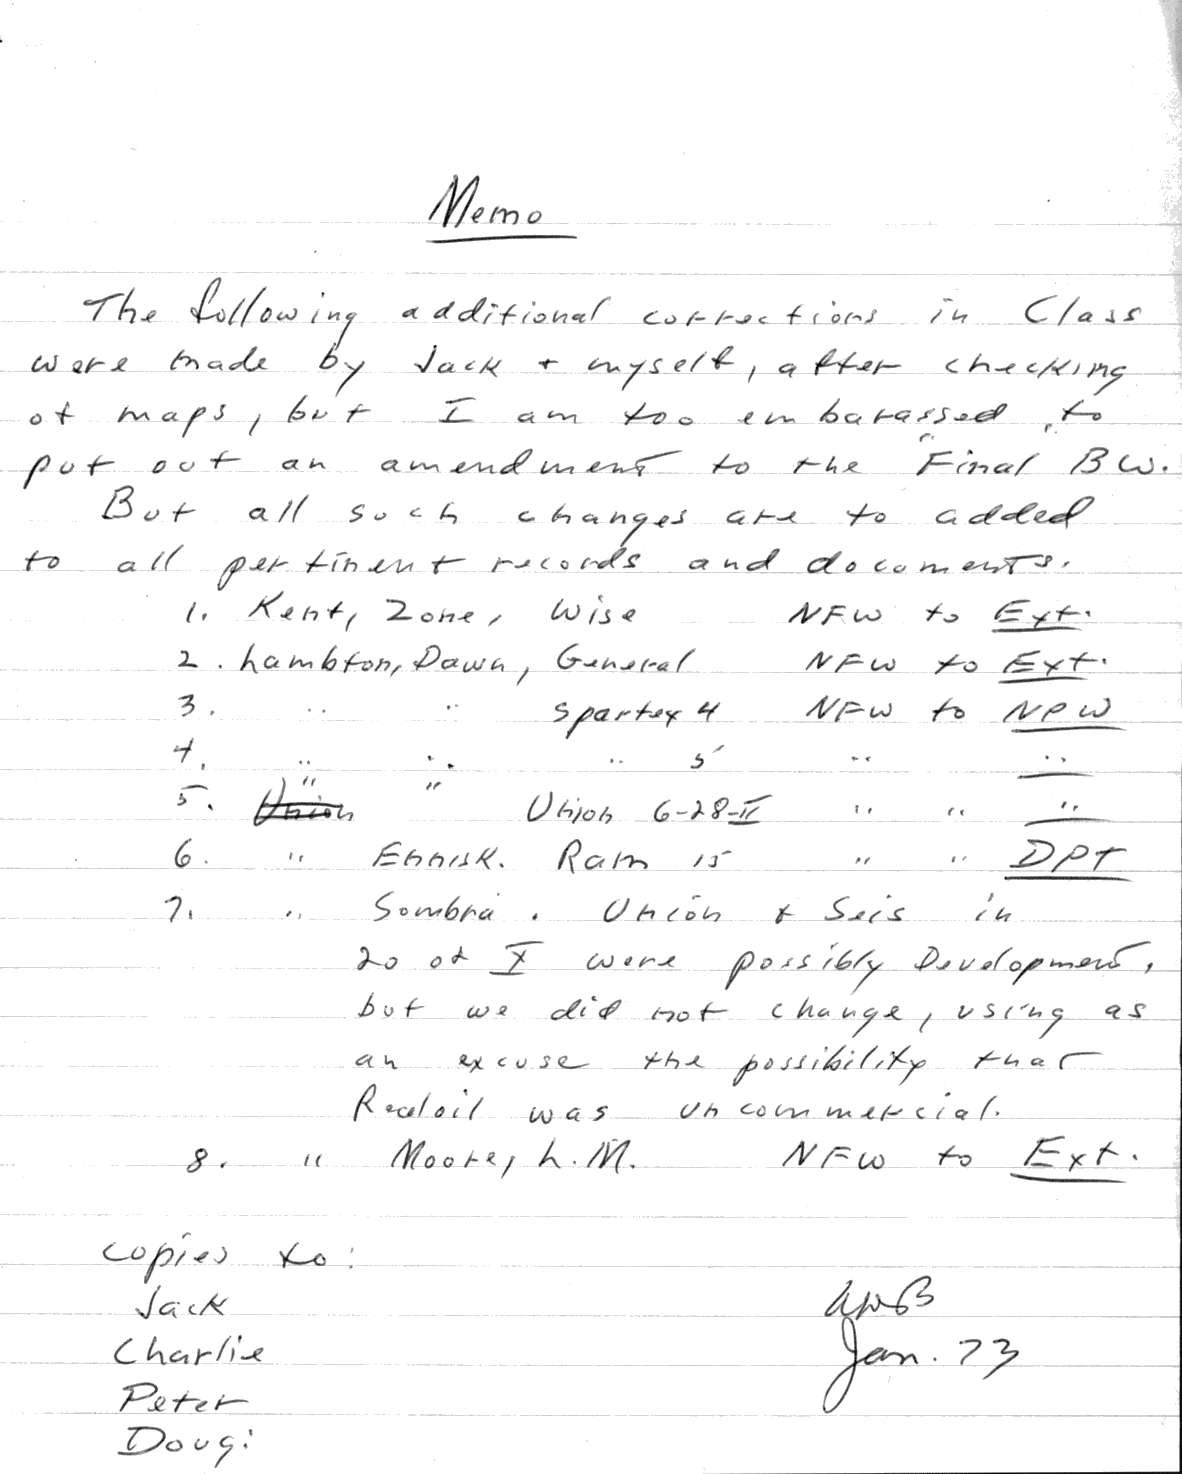 Memo
The following additional corrections in Class
were made by Jack + myself, after checking
of maps, but I am too embarassed, to
put out an amendment to the Final BW.
But all such changes are to added
to all pertinent records and documents.
1. Kent, Zone, Wise NFW to Ext.
2. Lambton, Dawn, General NFW to Ext.
3. " " Spartex 4 NFW to NPW
4. " " " 5 " "
5. Union " " Union 6-28-II " " "
6. " Ennisk. Ram 15 " " DPT
7. " Sombra. Union + Seis in
20 of X were possibly Development,
but we did not change, using as
an excuse the possibility that
Redoil was uncommercial.
8. " Moore, L.M. NFW to Ext.
Copies to:
Jack
Charlie
Peter
Doug:
Jan. 73